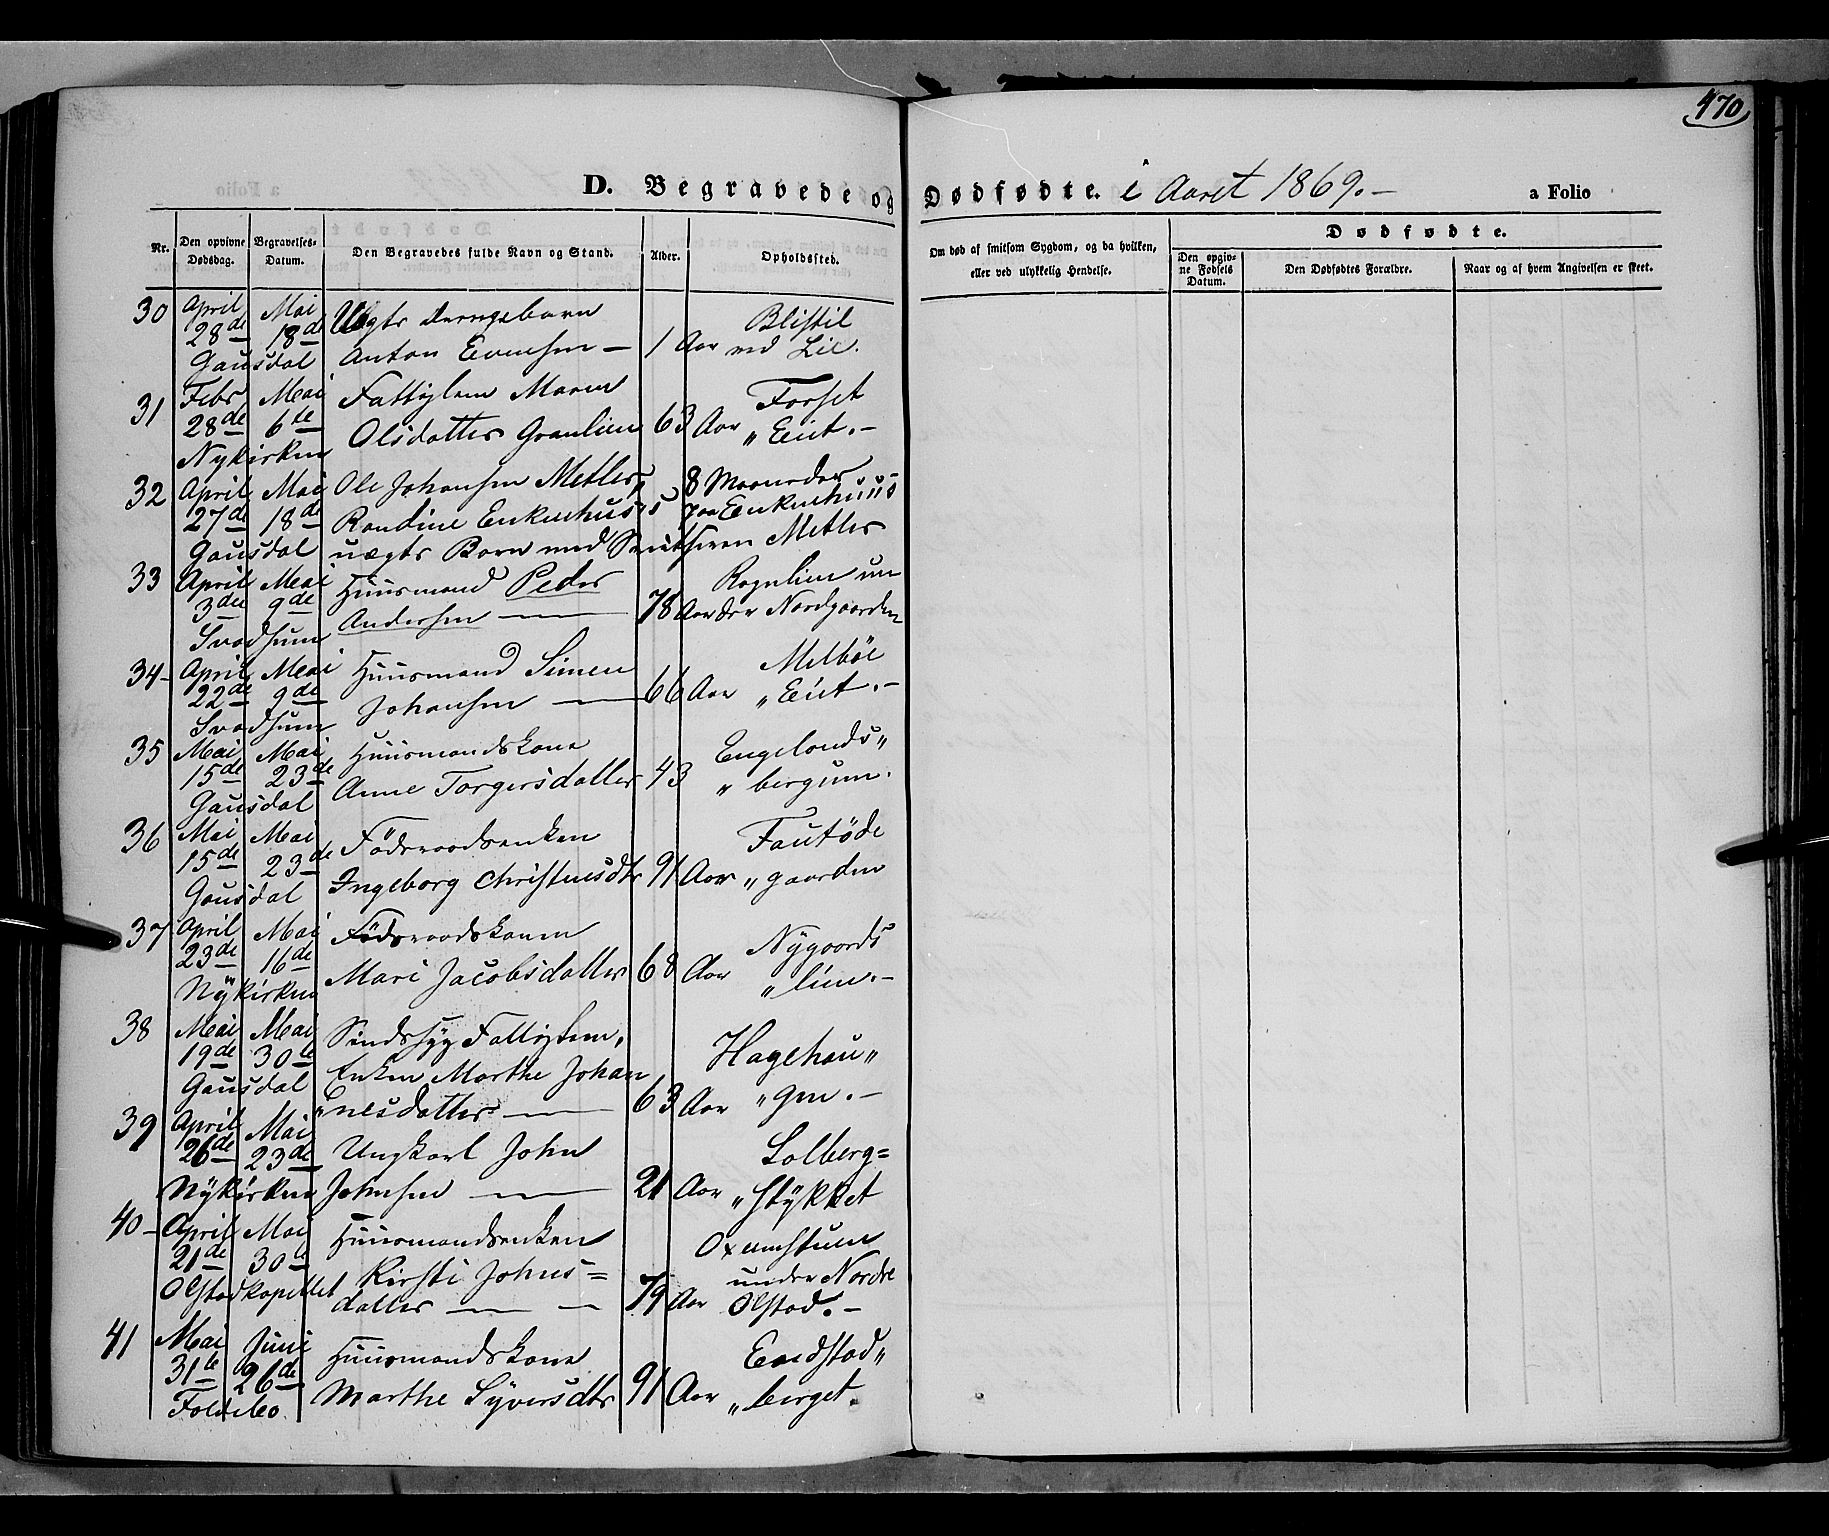 470
D. Begravede og Dødfødte. i Aaret 1869.- a Folio
Nr. Den opgivne Dødsdag. Begravelses-Datum. Den Begravedes fulde Navn og Stand. Alder. Opholdssted.
Om død af smitsom Sygdom, og da hvilken, eller ved ulykkelig Hendelse.
Dødfødte.
Den opgivne Fødsels Datum. Den Dødfødtes Forældre. Naar og af hvem Angivelsen er skeet.
30 April Mai Uægte Drengebarn Blistil
28de 18de
Gausdal Anton Evensen — 1 Aar ved Lie.
31 Febr Mai Fattiglem Maren Forset
28de 6te Olsdatter Granlien 63 Aar „ Eiet.-
Nykirken
32 April Mai Ole Johansen Metler, 8 Maaneder
27de 18de Randine Enkenhuus's paa Enkenhuus
Gausdal uægte Barn med Metler
33 April Mai Huusmand Peder Rognlien un
3die 9de Andersen — 78 Aar der Nordgaarden
Svadsum
34- April Mai Huusmand Simen Melböe
22de 9de Johansen — 66 Aar „ Eiet.-
Svadsum
35 Mai Mai Huusmandskone Engelands„
15de 23de Anne Torgersdatter 43 „ bergum.
Gausdal
36 Mai Mai Födsraadsenken Fautöde
15de 23de Ingeborg Christensdtr 91 Aar „ gaarden
Gausdal
37 April Mai Födsraadskonen Nygaards
23de 16de Mari Jacobsdatter 68 Aar „ lien.-
Nykirken
38 Mai Mai Sindssyg Fattiglem, Hagehau„
19de 30te Enken Marthe Johan
Gausdal „nesdatter — 63 Aar „gen.-
39 April Mai Ungkarl John Solberg=
26de 23de
Nykirken Johnsen — 21 Aar „ stykket
40- April Mai Huusmandsenken Oxumstuen
21de 30te Kirsti Johns= under Nordre
Olstadkapellet datter — — 79 Aar Olstad.-
41 Mai Juni Huusmandskone Endstad„
31te 26de Marthe Syversdtr 91 Aar „berget.
Follebo